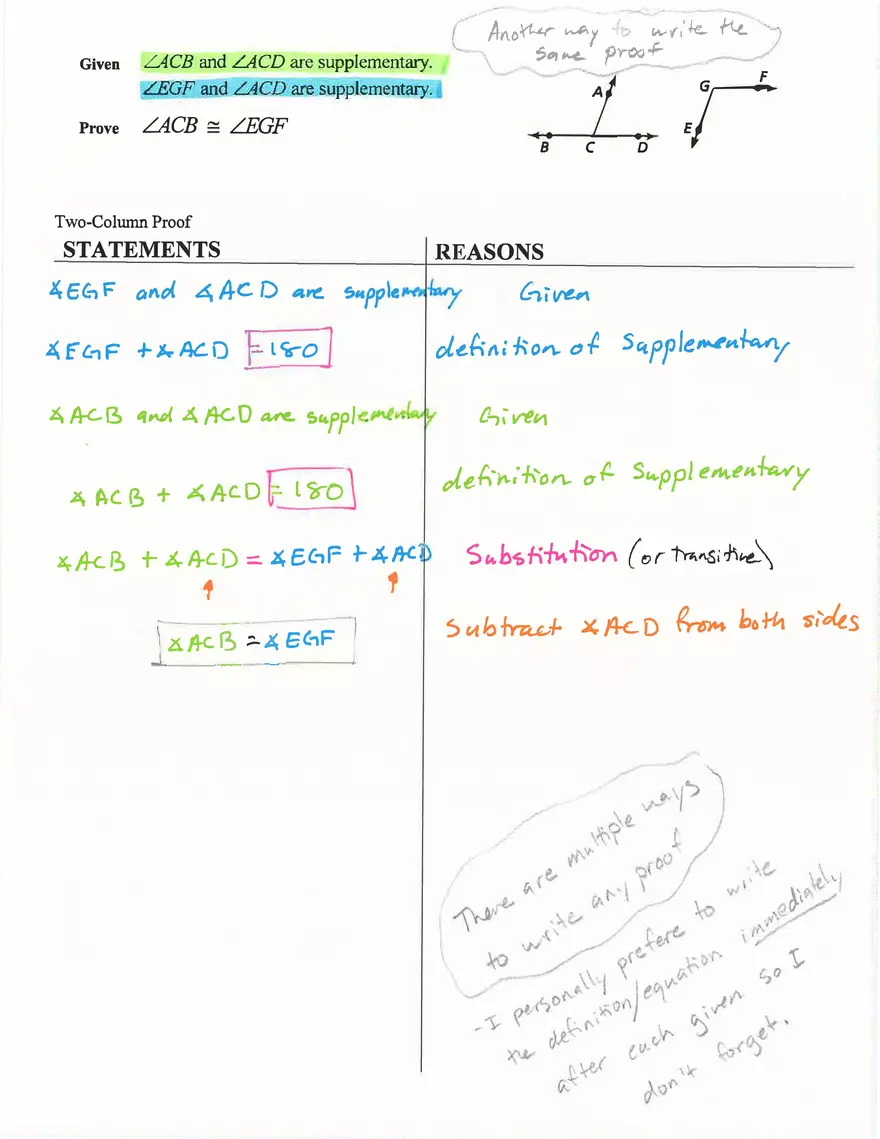 Another way to write the
same proof
Given ∠ACB and ∠ACD are supplementary.
∠EGF and ∠ACD are supplementary.
Prove ∠ACB ≅ ∠EGF
A
B C D
G F
E
Two-Column Proof
STATEMENTS REASONS
∡EGF and ∡ACD are supplementary Given
∡EGF + ∡ACD = 180 definition of Supplementary
∡ACB and ∡ACD are supplementary Given
∡ACB + ∡ACD = 180 definition of Supplementary
∡ACB + ∡ACD = ∡EGF + ∡ACD Substitution (or transitive)
∡ACB = ∡EGF Subtract ∡ACD from both sides
There are multiple ways
to write any proof
- I personally prefere to write
the definition/equation immediately
after each given so I
don't forget.